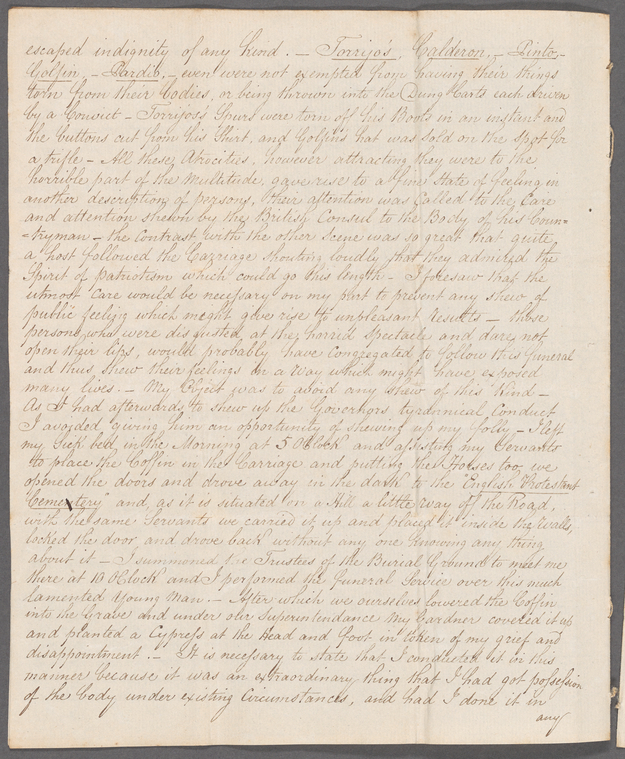 escaped indignity of any kind. — Torrijo's, Calderon, — Pinto, —
Golfin, — Pardio, — even were not exempted from having their things
torn from their bodies, or being thrown into the Dung Carts each driven
by a Convict — Torrijos's Spurs were torn off his Boots in an instant and
the buttons cut from his Shirt, and Golfin's hat was sold on the spot for
a trifle — All these Atrocities, however attracting they were to the
horrible part of the Multitude, gave rise to a fine State of feeling in
another description of persons, their attention was called to the Care
and attention shewn by the British Consul to the Body of his Coun=
=tryman — the Contrast with the other scene was so great that quite
a host followed the Carreage shouting loudly that they admired the
Spirit of Patriotism which could go this length — I foresaw that the
utmost care would be necessary on my part to prevent any shew of
public feeling which meght give rise to unpleasant results — those
persons who were disgusted at the horrid spectacle and dare not
open their lips, would probably have congregated to follow this funeral
and thus shew their feelings in a way which might have exposed
many lives. — My Object was to avoid any shew of this kind —
As I had afterwards to shew up the Governors tyrannical Conduct
I avoided giving him an opportunity of shewing up my folly — I left
my Sick bed in the Morning at 5 OClock and assisting my Servants
to place the Coffin in the Carriage and putting the Horses too, we
opened the doors and drove away in the dark to the "English Protestant
Cemetery" and, as it is situated on a Hill a little way off the Road,
with the same Servants we carried it up and placed it inside the Walls,
locked the door and drove back without any one knowing any thing
about it — I summoned the Trustees of the Burial Ground to meet me
there at 10 OClock and I performed the Funeral Service over this much
lamented Young Man. — After which we ourselves lowered the Coffin
into the Grave and under our Superintendance My Gardner covered it up
and planted a Cypress at the Head and Foot in token of my grief and
disappointment. — It is necessary to state that I conducted it in this
manner because it was an extraordinary thing that I had got possession
of the body under existing Circumstances, and had I done it in
any